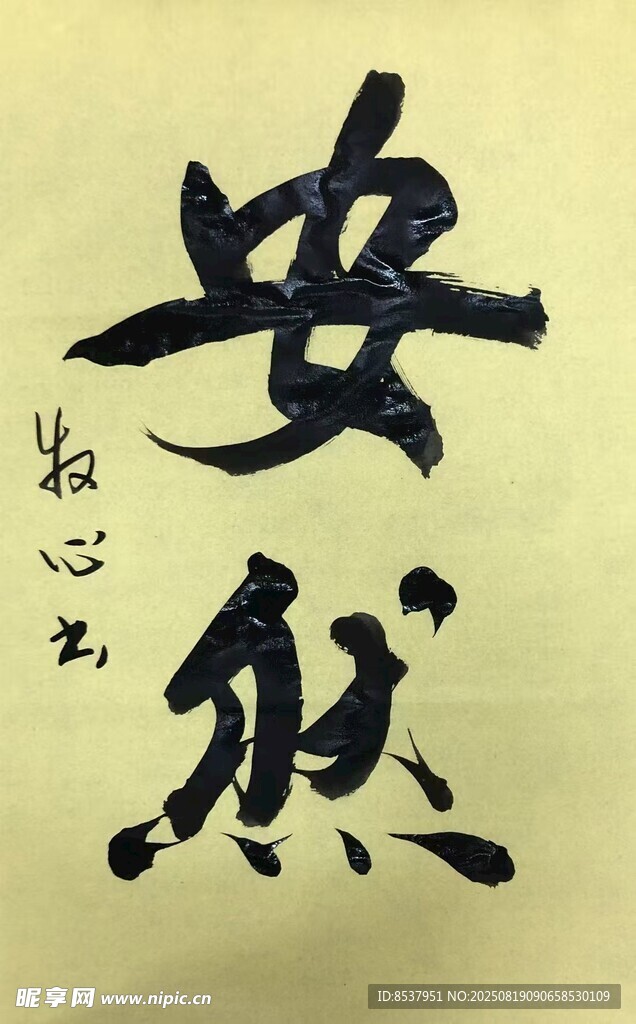 安然
牧心书
昵享网 www.nipic.cn
ID:8537951 NO:20250819090658530109